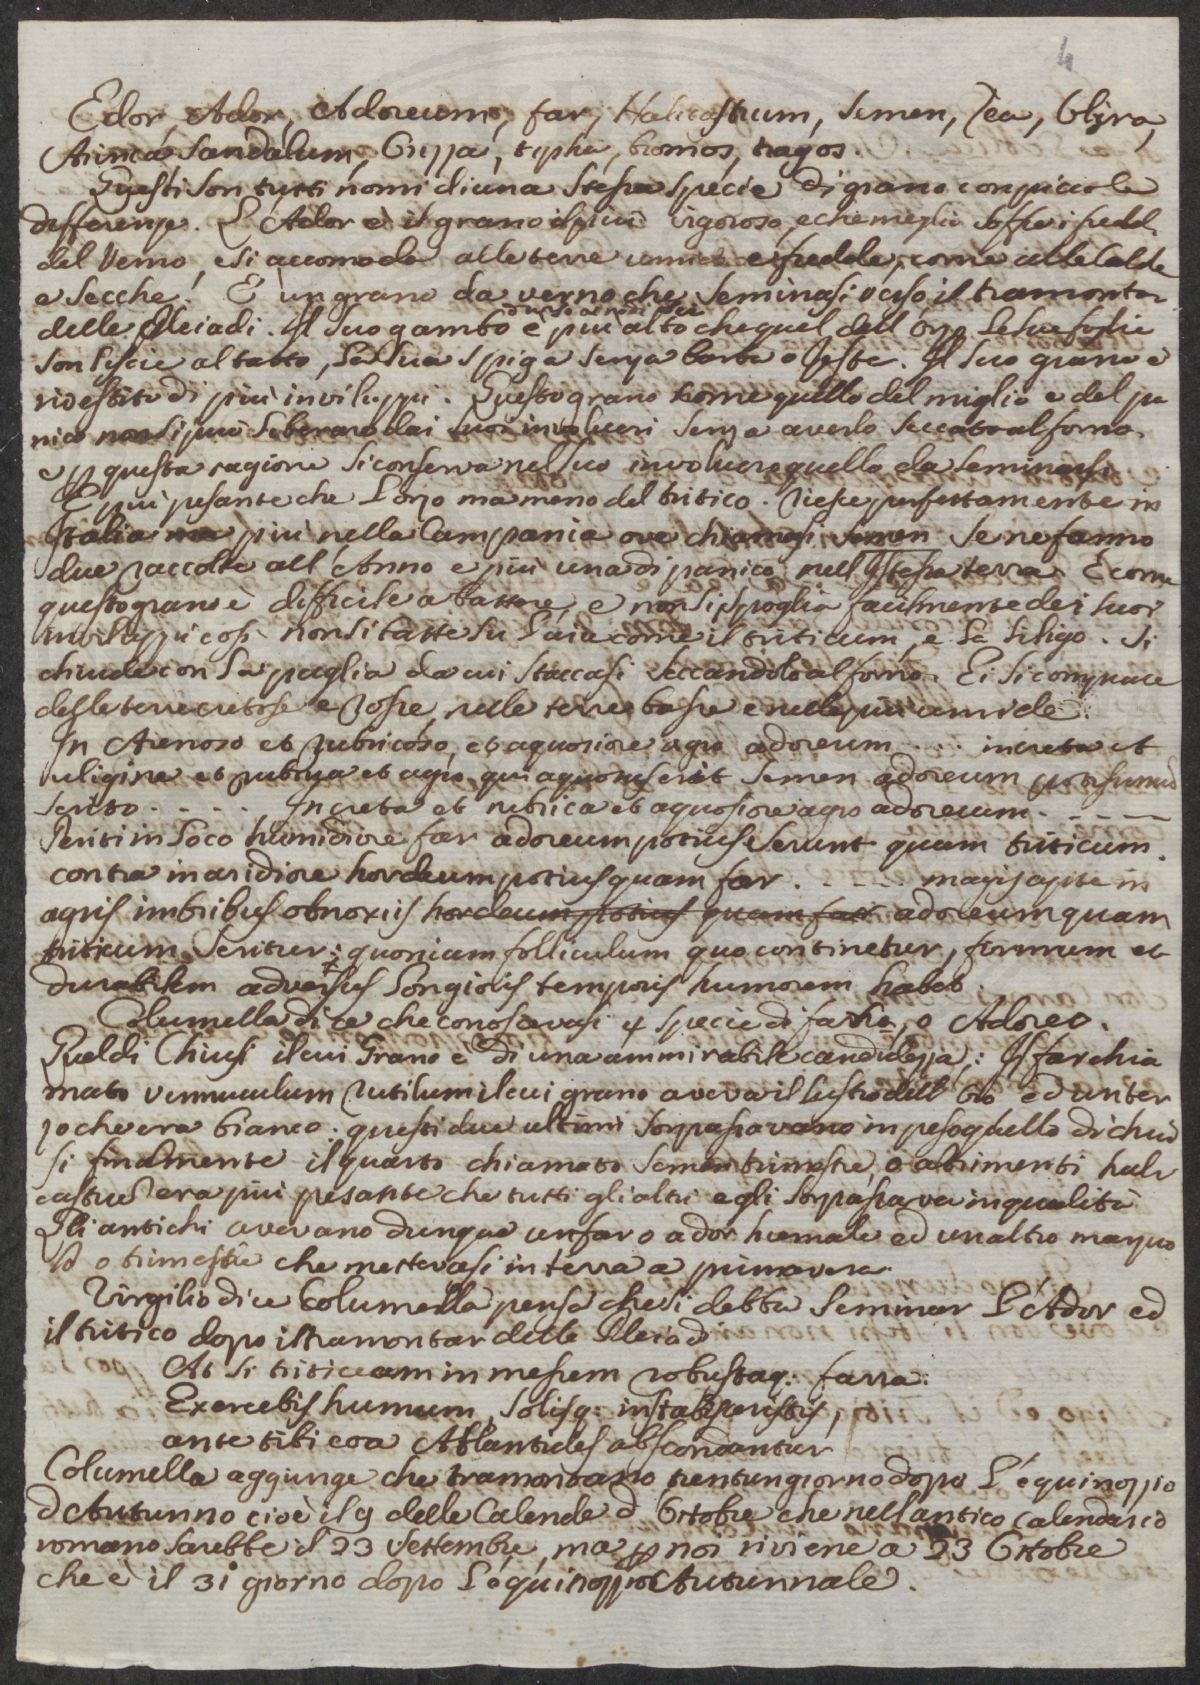 4
Edor, Ador, Adoreum, far, Halicastrum, Semen, Zea, Olyra,
Arinca, Sandalum, Orizza, typha, bromos, tragos.
Questi son tutti nomi di una stessa specie di grano con picciole
differenze. L'Ador è il grano il più vigoroso, e che meglio soffre i freddi
del Verno, e si accomoda alle terre umide e fredde, come alle Calde
e Secche. È un grano da verno che seminasi verso il tramontar
delle Pleiadi. Il suo gambo è più alto che quel dell'orzo le sue foglie
son liscie al tatto, la sua spiga senza barba o reste. Il suo grano è
rivestito di più inviluppi. Questo grano come quello del miglio e del pa
nico non si può liberare dai suoi involucri senza averlo seccato al forno.
e p questa ragione si conserva nel suo involucro quello da seminarsi.
È più pesante che l'orzo ma meno del tritico. Riesce perfettamente in
Italia ma più nella Campania ove chiamasi Semen Se ne fanno
due raccolte all'Anno e più una di panico nell'istessa terra. E come
questo grano è difficile a battere, e non si spoglia facilmente dei suoi
inviluppi così non si batte su l'aia come il triticum, e la siligo. Si
chiude con la paglia da cui staccasi seccandolo al forno. Ei si compiace
delle terre cretose e rosse, nelle terre basse e nelle più umide.
In Arenoso et rubricoso, et aquosiore agro adoreum .... in creta et
uligine et rubrica et agro, qui aquosus erit semen adoreum potissimum
serito ..... In creta et rubrica et aquosiore agro adoreum .....
Periti in loco humidiore far adoreum potius serunt quam triticum.
contra in aridiore hordeum potius quam far ..... magis apte in
agris imbribus obnoxiis hordeum potius quam far adoreum quam
triticum Seritur; quoniam folliculum quo continetur, firmum et
durabilem adversus longioris temporis humorem habet
Columella dice che conoscevasi 4 specie di farro, o Adoreo.
Quel di Chiusi il cui Grano è di una ammirabile candidezza: Il far chia
mato vennuculum rutilum il cui grano aveva il lustro dell'Oro ed un ter
zo che era bianco. questi due ultimi sorpassavano in peso quello di chiu
si finalmente il quarto chiamato Semen trimestre, o altrimenti hali
castrum era più pesante che tutti gli altri e gli sorpassava in qualità
Gli antichi avevano dunque un far o ador hiemale ed un altro marzuo
lo o trimestre che mettevasi in terra a primavera.
Virgilio dice Columella pensa che si debba seminar l'Ador ed
il tritico dopo il tramontar delle Pleiadi
At si triticeam in messem robustaq: farra:
Exercebis humum, solisq: instabis aristis,
ante tibi eoa Atlantides abscondantur
Columella aggiunge che tramontano trentun giorno dopo l'equinozzio
d'Autunno cioè il 9 delle Calende d'Ottobre che nell'antico Calendario
romano sarebbe il 23 Settembre, ma p noi riviene a 23 Ottobre
che è il 31 giorno dopo l'equinozzio Autunnale.